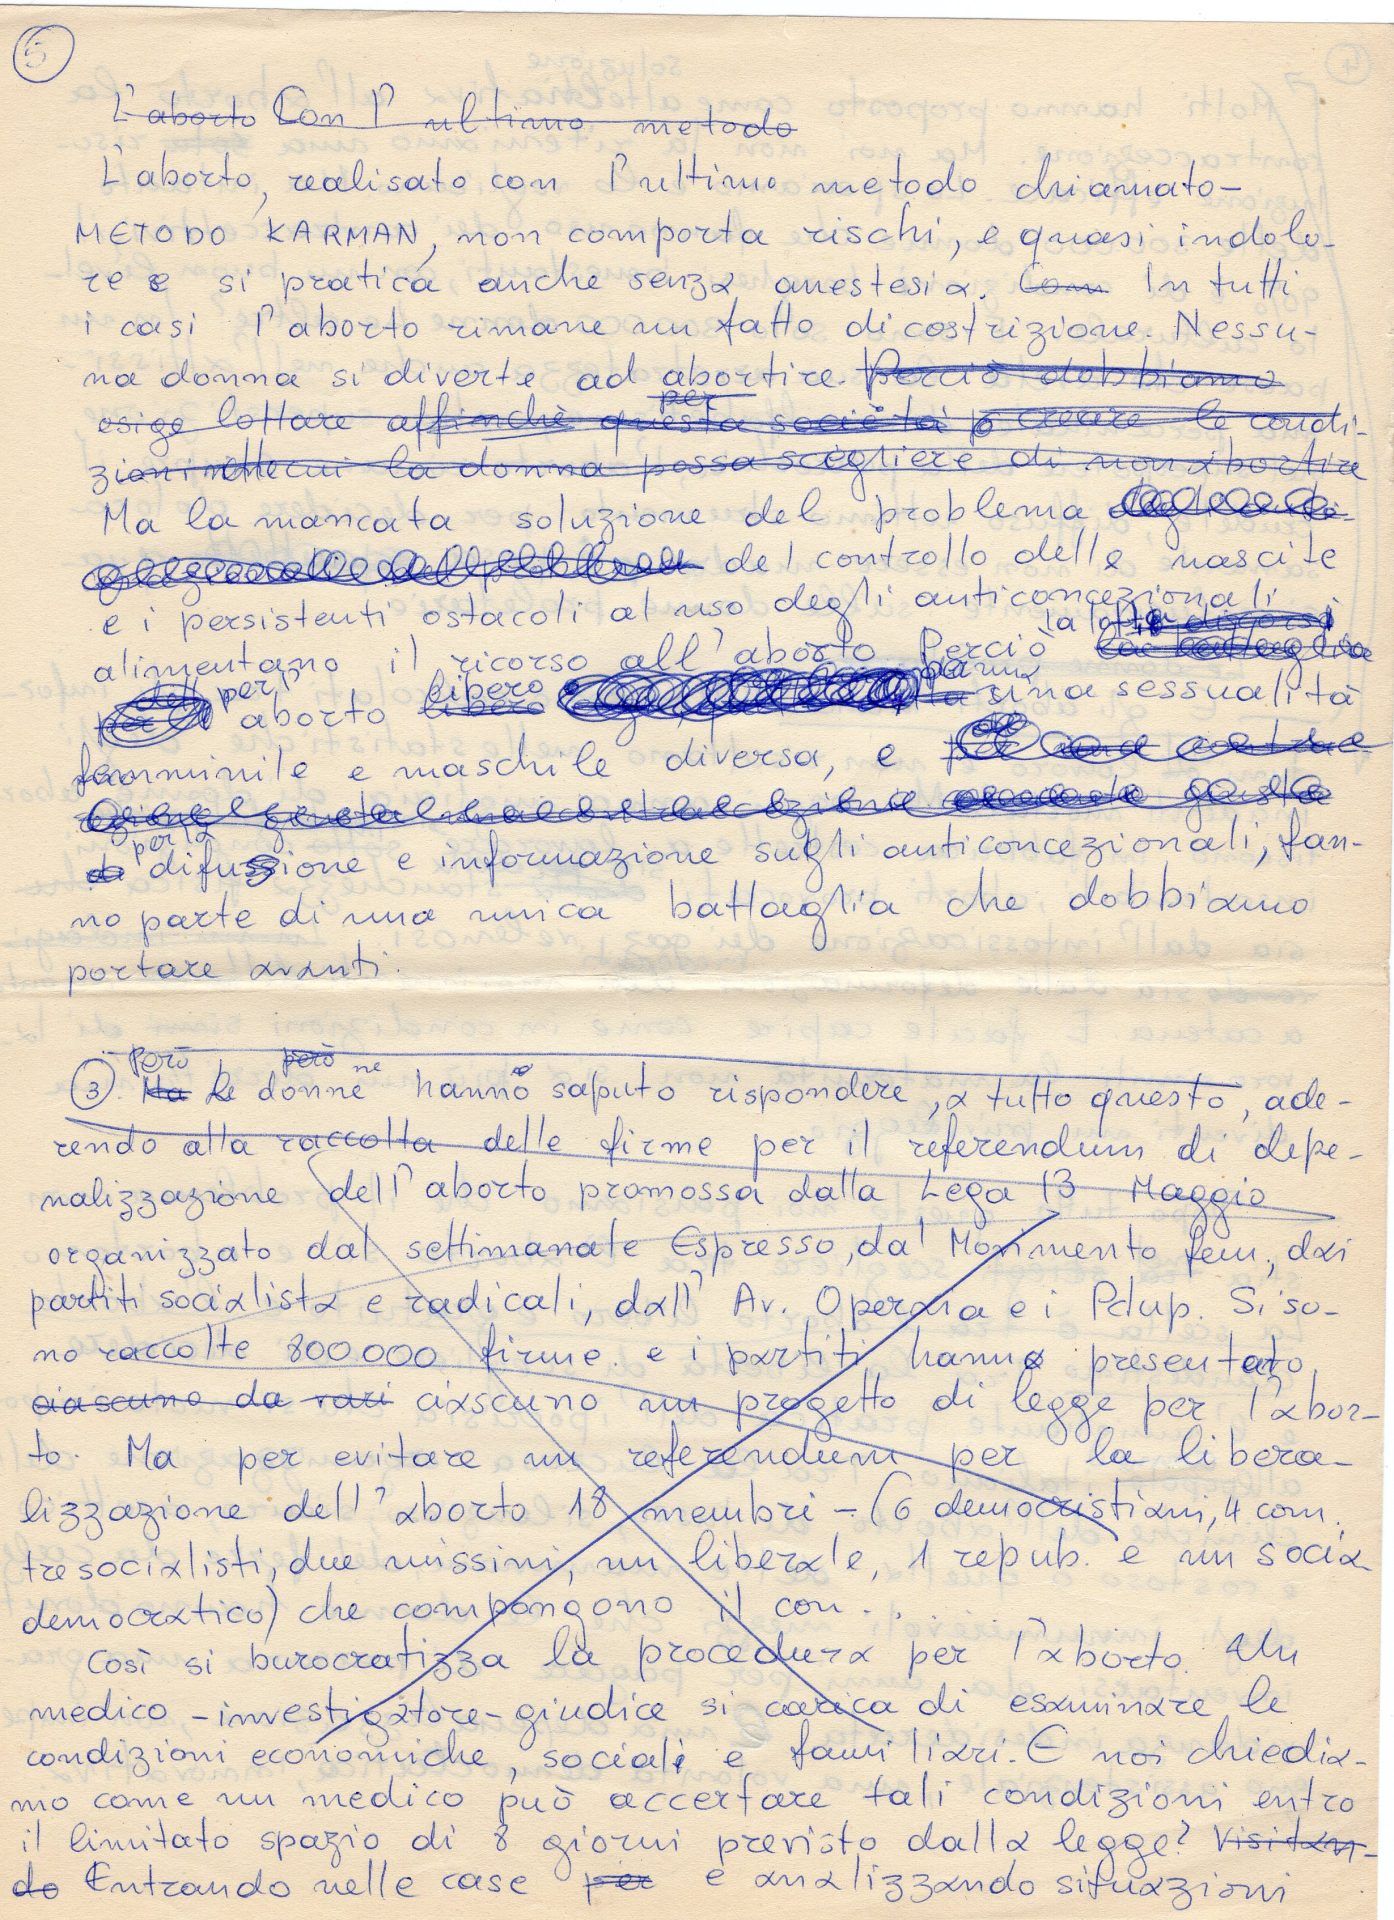 5
L'aborto Con l'ultimo metodo
L'aborto, realisato con l'ultimo metodo chiamato-
METODO KARMAN, non comporta rischi, e quasi indolo-
re e si pratica anche senza anestesia. Com In tutti
i casi l'aborto rimane un fatto di costrizione. Nessu-
na donna si diverte ad abortire. Perciò dobbiamo
per
esige lottare affinchè questa società p creare le condi-
zioni nelle cui la donna possa scegliere di non abortire
Ma la mancata soluzione del problema
del controllo delle nascite
e i persistenti ostacoli al uso degli anticoncezionali
la lotta
alimentano il ricorso all'aborto Perciò la battaglia
per l' libero per una
aborto libero sina sessualità
femminile e maschile diversa, e
per la
difusione e informazione sugli anticoncezionali, fan-
no parte di una unica battaglia che dobbiamo
portare avanti.
Però però ne
3. Ma le donne hanno saputo rispondere, a tutto questo, ade-
rendo alla raccolta delle firme per il referendum di depe-
nalizzazione dell'aborto promossa dalla Lega 13 Maggio
organizzato dal settimanate Espresso, dal Movimento fem, dai
partiti socialista e radicali, dall' Av. Operaia e i Pdup. Si so-
no raccolte 800.000 firme. e i partiti hanno presentato
ciascuno da vari ciascuno un progetto di legge per l'abor-
to. Ma per evitare un referendum per la libera-
lizzazione dell'aborto 18 membri - (6 democristiani, 4 com.
tre socialisti, due missini, un liberale, 1 repub. e un socia
democratico) che compongono il con..
Così si burocratizza la procedura per l'aborto. Un
medico - investigatore - giudice si carica di esaminare le
condizioni economiche, sociali e familiari. E noi chiedia-
mo come un medico può accertare tali condizioni entro
il limitato spazio di 8 giorni previsto dalla legge? Visitan-
do Entrando nelle case per e analizzando situazioni